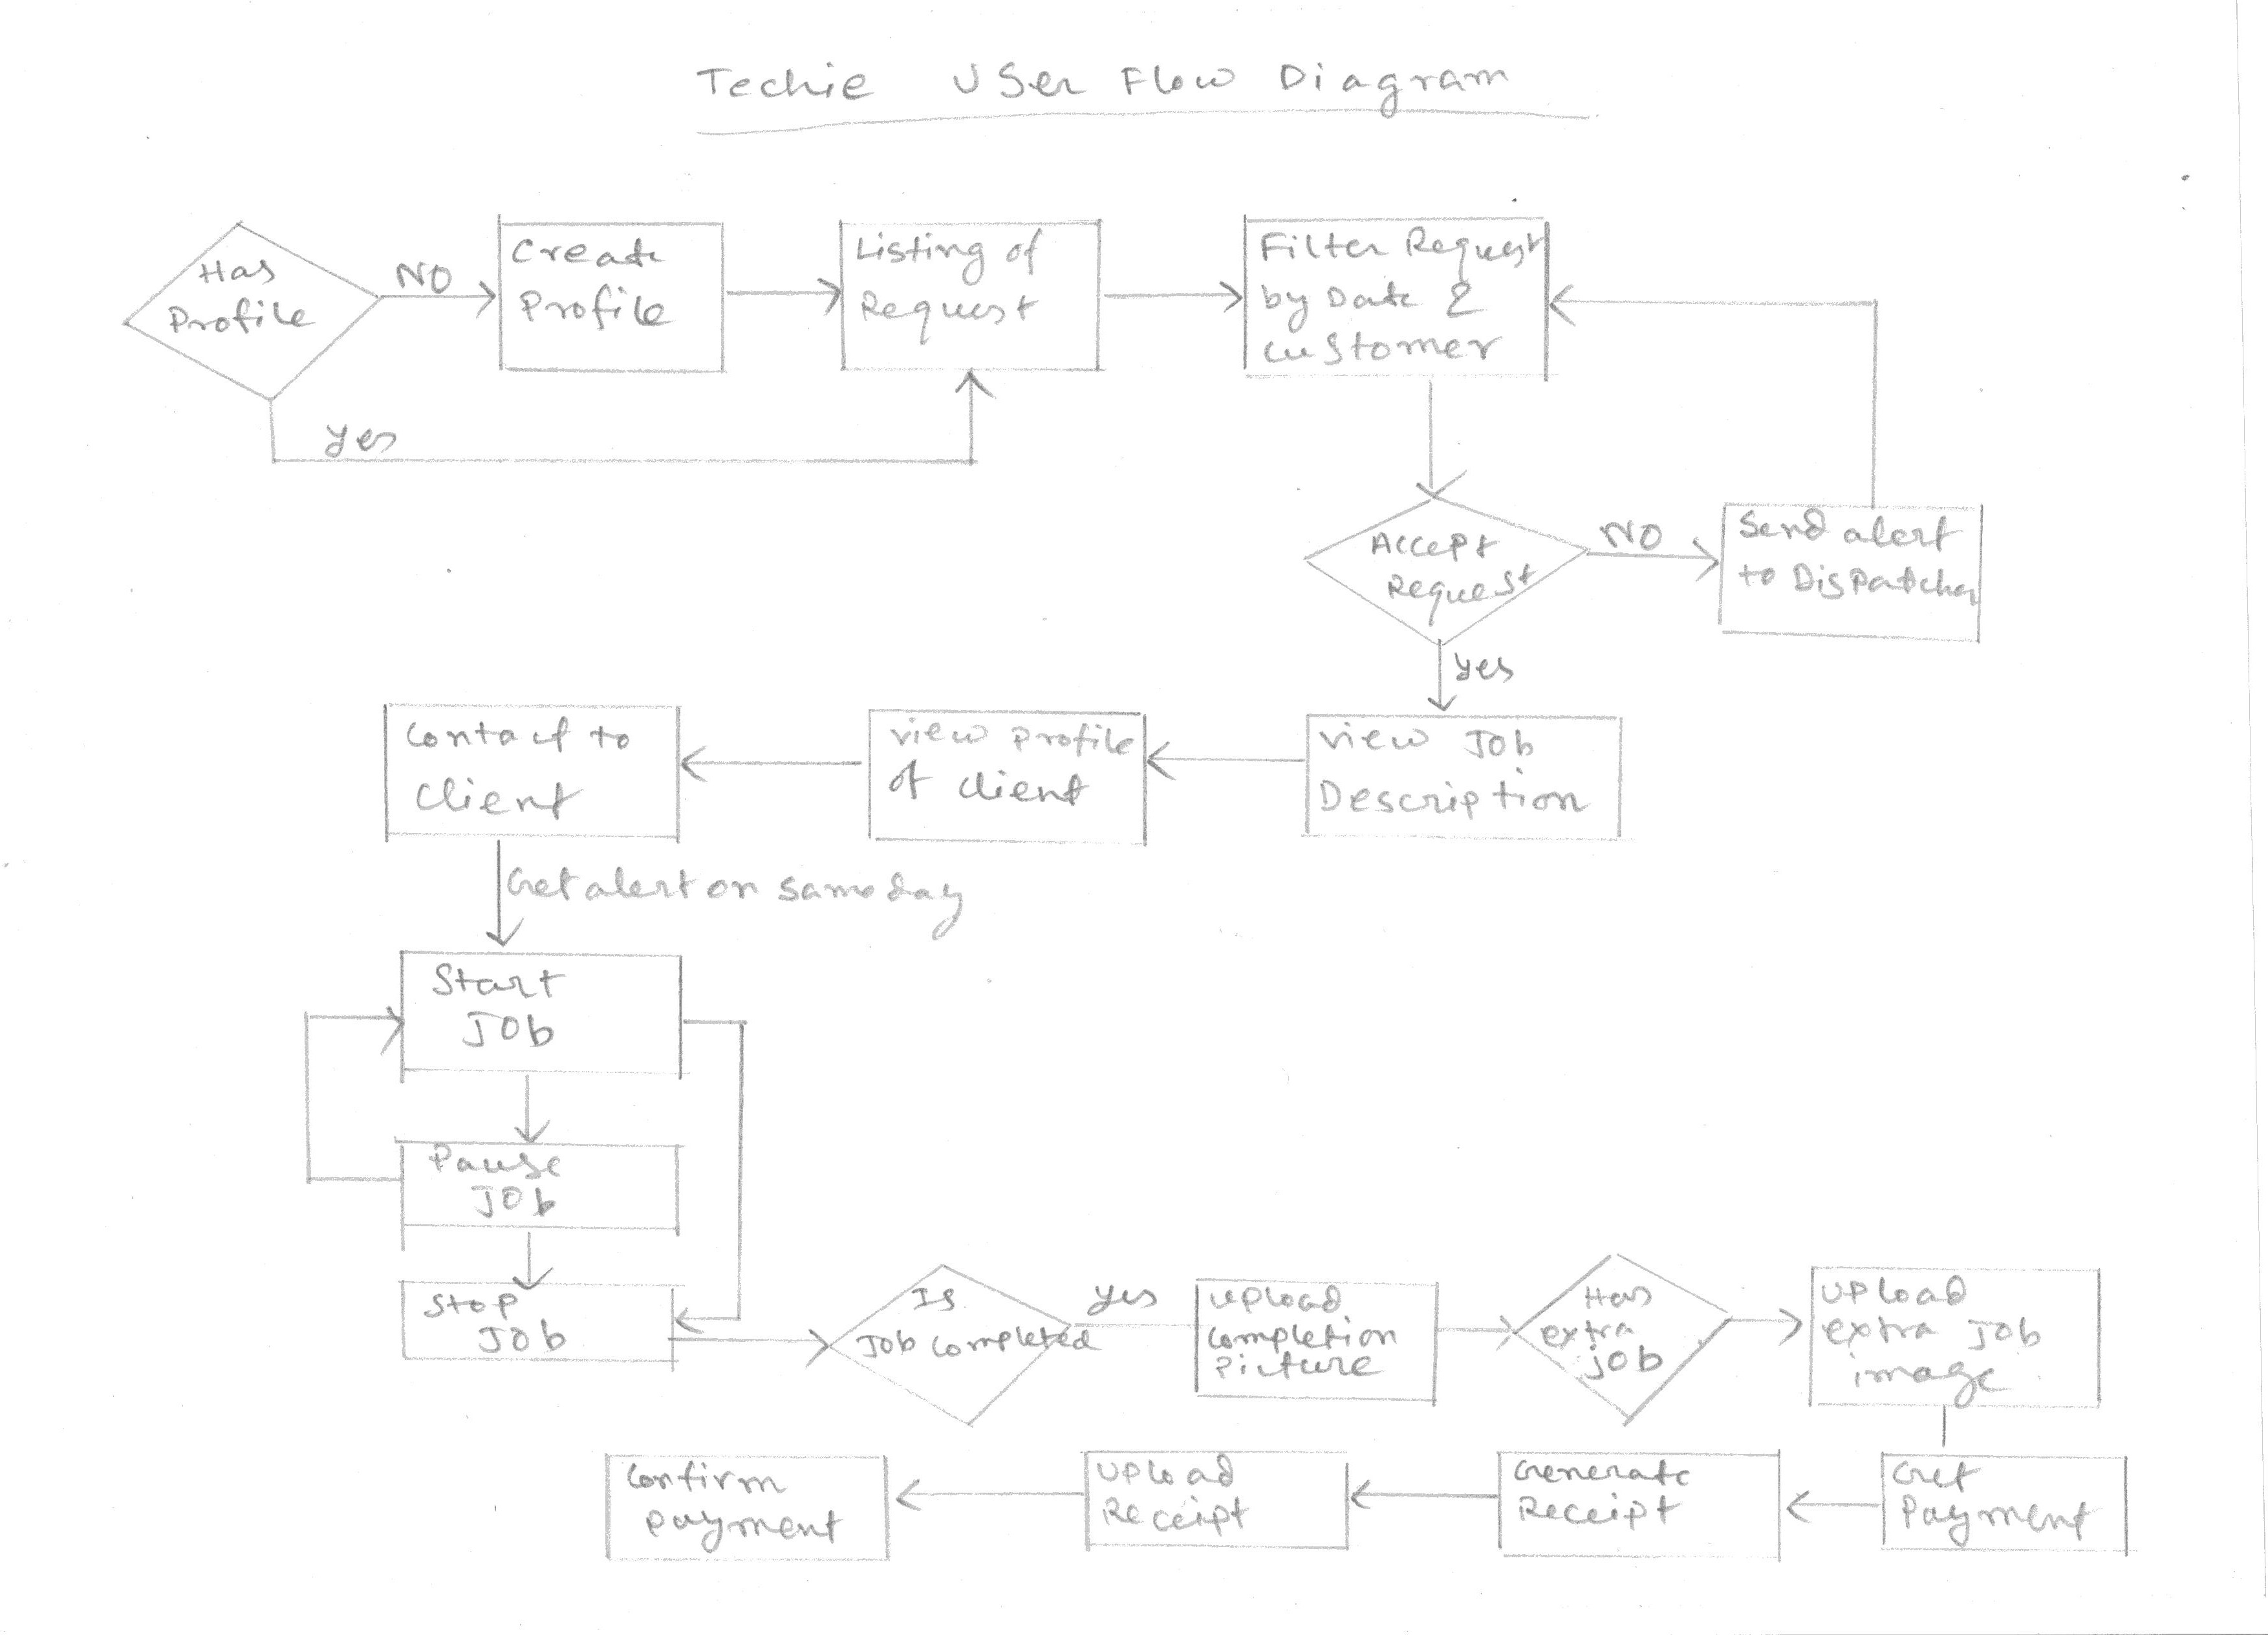 Techie User Flow Diagram
Has
Profile
NO
Create
Profile
Listing of
Request
Filter Request
by Date &
customer
yes
Accept
Request
NO
Send alert
to Dispatcher
yes
Contact to
Client
view profile
of client
view Job
Description
Get alert on same day
Start
Job
Pause
Job
Stop
Job
Is
Job Completed
yes
upload
completion
picture
Has
extra
job
upload
extra Job
image
Confirm
payment
upload
Receipt
Generate
Receipt
Get
Payment